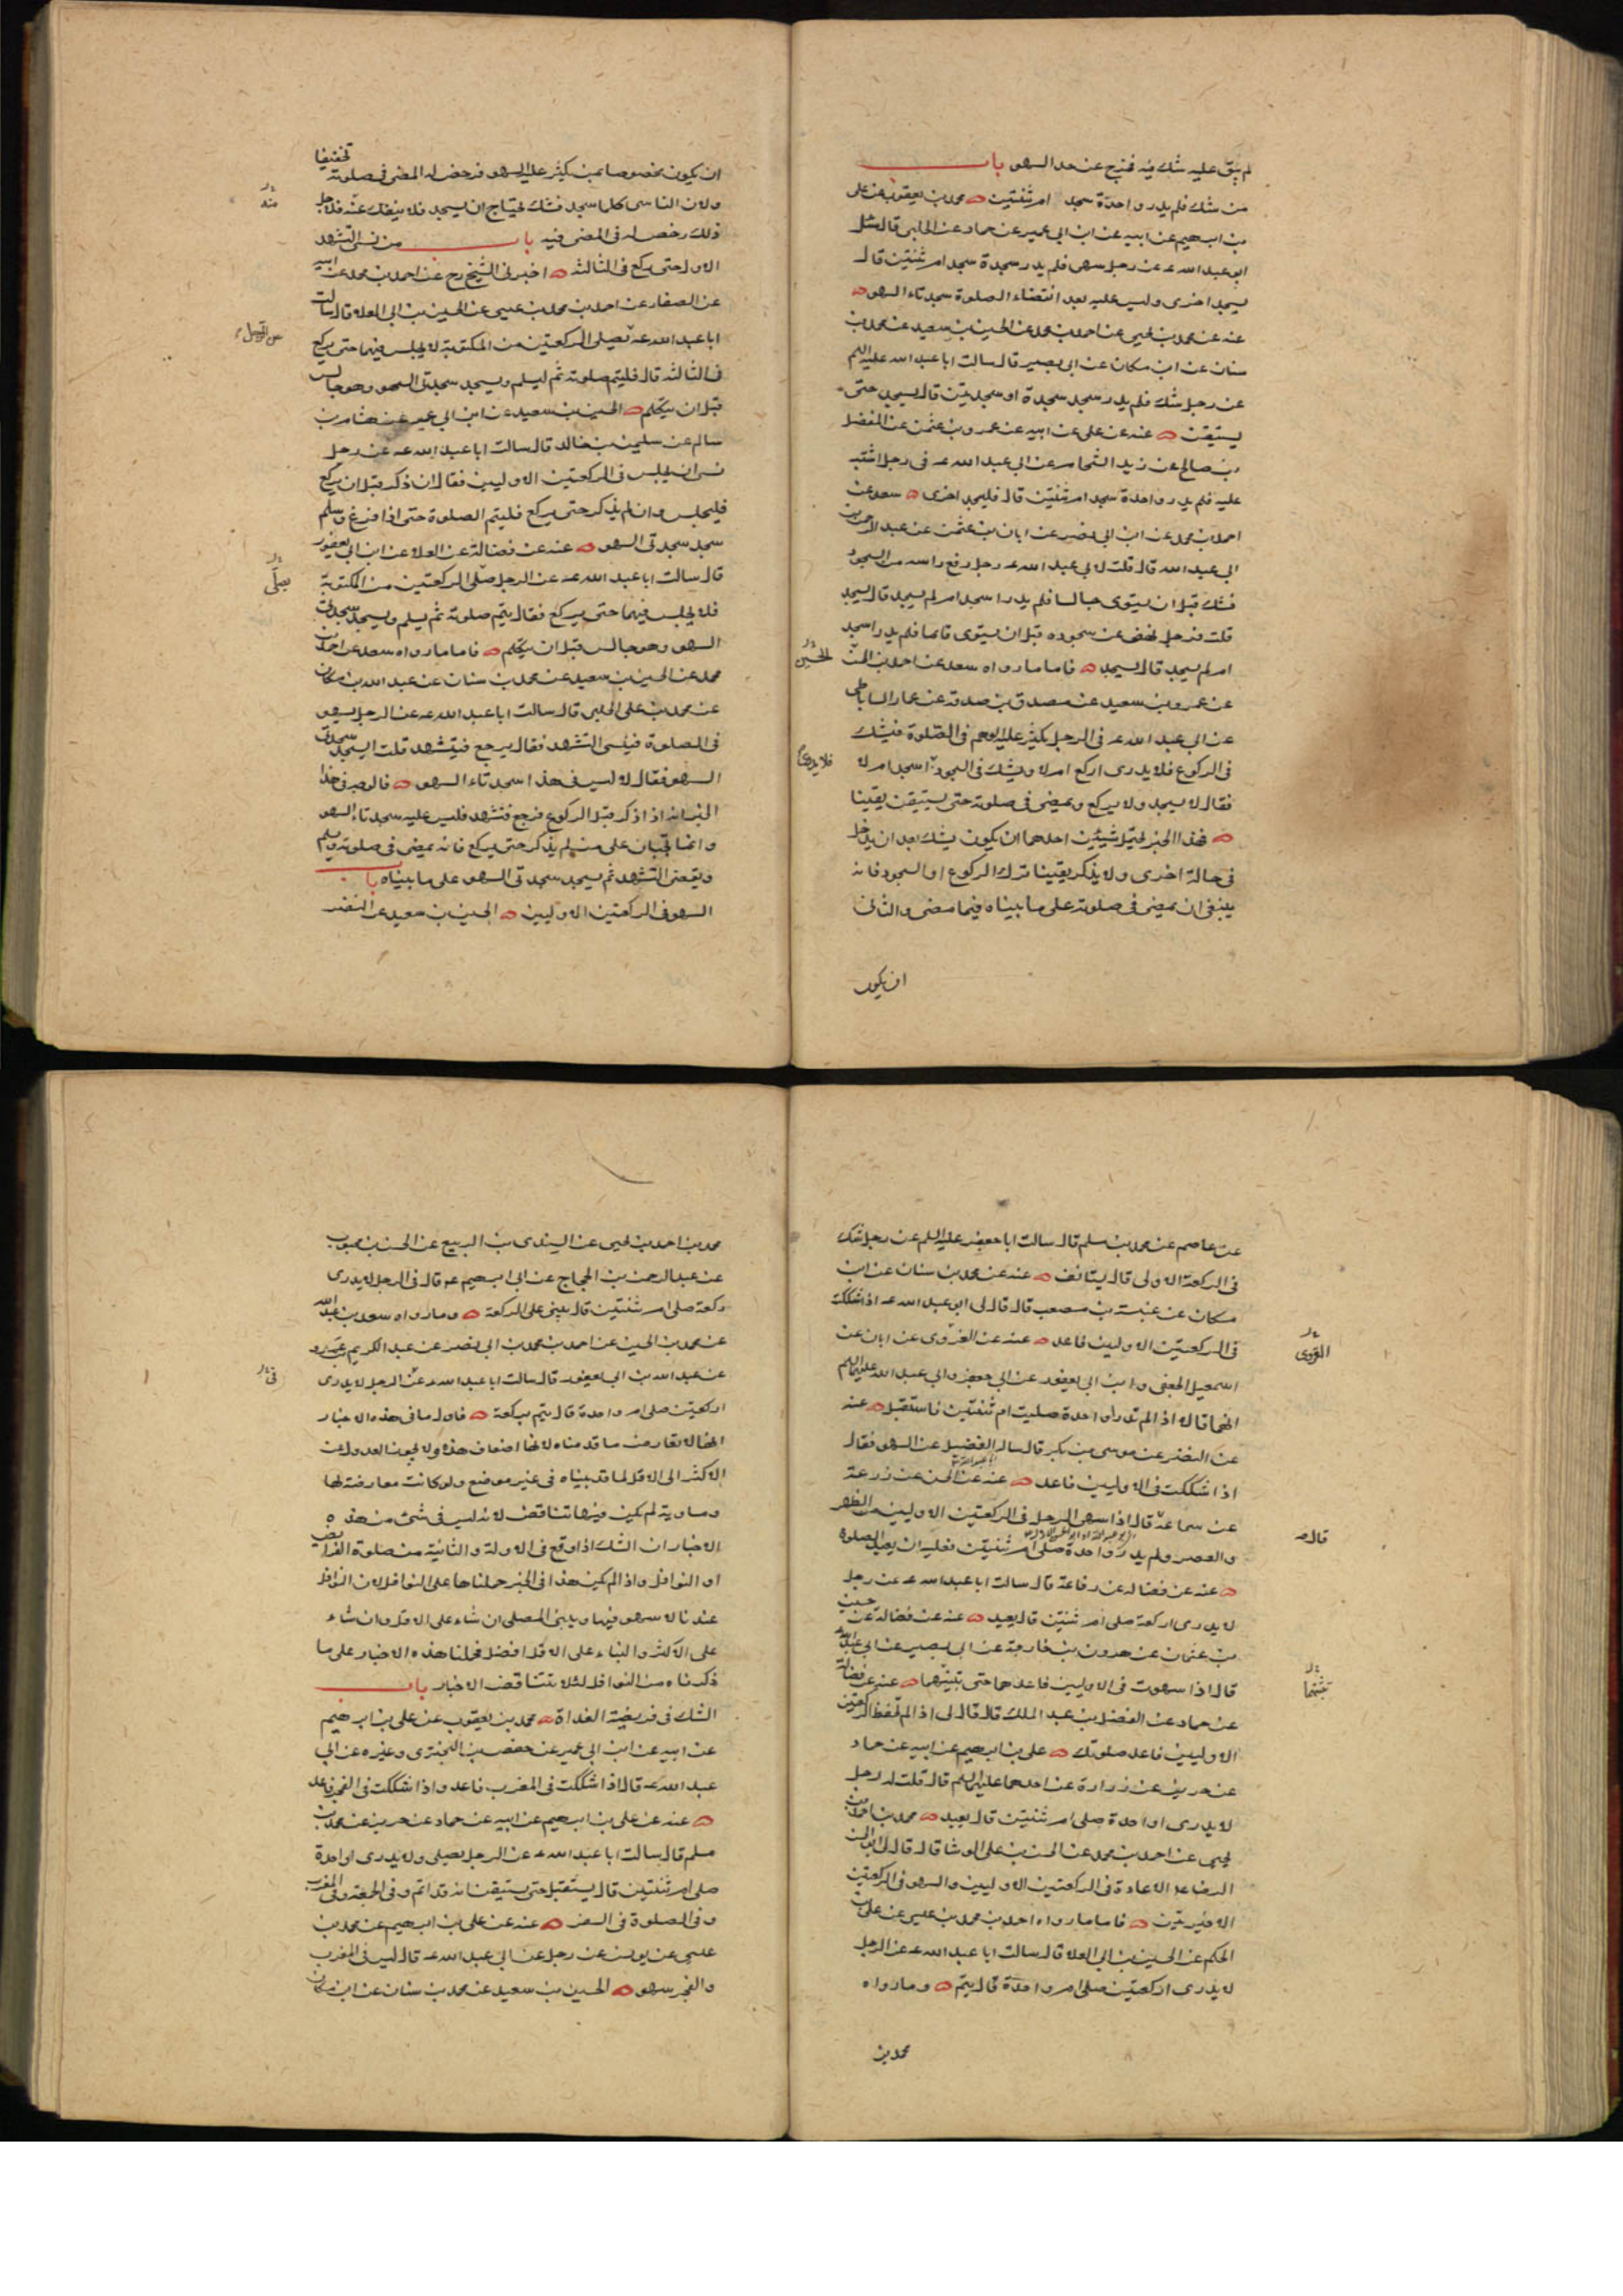 لم يبق عليه شك فيه فخرج عن حد السهو باب
من شك فلم يدر واحدة سجد ام ثنتين محمد بن يعقوب عن على
بن ابرهيم عن ابيه عن ابن ابي عمير عن حماد عن الحلبى قال سئل
ابو عبد الله عه عن رجل سهى فلم يدر سجدة سجد ام ثنتين قال
يسجد اخرى وليس عليه بعد انقضاء الصلوة سجدتا السهو
عنه عن محمد بن يحيى عن احمد بن محمد عن الحسين بن سعيد عن محمد بن
سنان عن ابن مسكان عن ابي بصير قال سالت ابا عبد الله عليه السلم
عن رجل شك فلم يدر سجد سجدة او سجدتين قال يسجد حتى
يستيقن عنه عن على عن ابيه عن عمرو بن عثمن عن المفضل
بن صالح عن زيد الشحام عن ابي عبد الله عه فى رجل اشتبه
عليه فلم يدر واحدة سجد ام ثنتين قال فليسجد اخرى سعد عن
احمد بن محمد عن ابن ابي نصر عن ابان بن عثمن عن عبد الرحمن بن
ابي عبد الله قال قلت لابي عبد الله عه رجل رفع راسه من السجود
فشك قبل ان يستوى جالسا فلم يدر اسجد ام لم يسجد قال يسجد
قلت فرجل نهض عن سجوده قبل ان يستوى قائما فلم يدر اسجد
ام لم يسجد قال يسجد فاما ما رواه سعد عن احمد بن الحسن
الحسين
عن عمرو بن سعيد عن مصدق بن صدقة عن عمار الساباطى
عن ابي عبد الله عه فى الرجل يكثر عليه الوهم فى الصلوة فيشك
فى الركوع فلا يدرى اركع ام لا ويشك فى السجود اسجد ام لا
فلا يدرى
فقال لا يسجد ولا يركع ويمضى فى صلوته حتى يستيقن يقينا
فهذا الخبر يحتمل شيئين احدهما ان يكون يشك بعد ان يدخل
فى حالة اخرى ولا يذكر يقينا ترك الركوع او السجود فانه
ينبغى ان يمضى فى صلوته على ما بيناه فيما مضى والثانى
ان يكون
ان يكون مخصوصا بمن يكثر عليه السهو فرخص له المضى فى صلوته تخفيفا
ولان الناسى كلما سجد فشك يحتاج ان يسجد فلا ينفك عنه فلاجل
منه
ذلك رخص له فى المضى فيه باب من نسى التشهد
الاول حتى يركع فى الثالثة اخبرنى الشيخ رح عن احمد بن محمد عن ابيه
عن الصفار عن احمد بن محمد بن عيسى عن الحسين بن ابي العلا قال سالت
ابا عبد الله عه يصلى الركعتين من المكتوبة لا يجلس فيهما حتى يركع
عن الرجل
فى الثالثة قال فليتم صلوته ثم ليسلم ويسجد سجدتى السهو وهو جالس
قبل ان يتكلم الحسين بن سعيد عن ابن ابي عمير عن هشام بن
سالم عن سليمن بن خالد قال سالت ابا عبد الله عه عن رجل
نسى ان يجلس فى الركعتين الاوليين فقال ان ذكر قبل ان يركع
فليجلس وان لم يذكر حتى يركع فليتم الصلوة حتى اذا فرغ وسلم
سجد سجدتى السهو عنه عن فضالة عن العلا عن ابن ابي يعفور
قال سالت ابا عبد الله عه عن الرجل صلى الركعتين من المكتوبة
يصلى
فلا يجلس فيهما حتى يركع فقال يتم صلوته ثم يسلم ويسجد سجدتى
السهو وهو جالس قبل ان يتكلم فاما ما رواه سعد عن احمد بن
محمد عن الحسين بن سعيد عن محمد بن سنان عن عبد الله بن مسكان
عن محمد بن على الحلبى قال سالت ابا عبد الله عه عن الرجل يسهو
فى الصلوة فينسى التشهد فقال يرجع فيتشهد قلت ايسجد سجدتى
السهو فقال لا ليس فى هذا سجدتا السهو فالوجه فى هذا
الخبر انه اذا ذكر قبل الركوع فرجع فتشهد فليس عليه سجدتا السهو
وانما تجبان على من لم يذكر حتى يركع فانه يمضى فى صلوته ويسلم
ويقضى التشهد ثم يسجد سجدتى السهو على ما بيناه باب
السهو فى الركعتين الاوليين الحسين بن سعيد عن النضر
عن عاصم عن محمد بن مسلم قال سالت ابا جعفر عليه السلم عن رجل شك
فى الركعة الاولى قال يستانف عنه عن محمد بن سنان عن ابن
مسكان عن عنبسة بن مصعب قال قال لى ابو عبد الله عه اذا شككت
فى الركعتين الاوليين فاعد عنه عن القروى عن ابان عن
اسمعيل الجعفى وابن ابي يعفور عن ابي جعفر وابي عبد الله عليهما السلم
انهما قالا اذا لم تدر واحدة صليت ام ثنتين فاستقبل عنه
عن النضر عن موسى بن بكر قال ساله الفضيل عن السهو فقال
اذا شككت فى الاوليين فاعد عنه عن الحسن عن زرعة
عن سماعة قال اذا سهى الرجل فى الركعتين الاوليين من الظهر
قال
والعصر ولم يدر واحدة صلى ام ثنتين فعليه ان يعيد الصلوة
عنه عن فضالة عن رفاعة قال سالت ابا عبد الله عه عن رجل
لا يدرى اركعة صلى ام ثنتين قال يعيد عنه عن فضالة عن حسين
بن عثمان عن هرون بن خارجة عن ابي بصير عن ابي عبد الله
قال اذا سهوت فى الاوليين فاعدهما حتى تثبتهما عنه عن فضالة
تثبتهما
عن حماد عن الفضل بن عبد الملك قال قال لى اذا لم تحفظ الركعتين
الاوليين فاعد صلوتك على بن ابرهيم عن ابيه عن حماد
عن حريز عن زرارة عن احدهما عليهما السلم قال قلت له رجل
لا يدرى اواحدة صلى ام ثنتين قال يعيد محمد بن احمد بن
يحيى عن احمد بن محمد عن الحسن بن على الوشا قال قال لى ابو الحسن
الرضا عه الاعادة فى الركعتين الاوليين والسهو فى الركعتين
الاخيرتين فاما ما رواه احمد بن محمد بن عيسى عن على بن
الحكم عن الحسين بن ابي العلا قال سالت ابا عبد الله عه عن الرجل
لا يدرى اركعتين صلى ام واحدة قال يتم وما رواه
محمد بن
محمد بن احمد بن يحيى عن السندى بن الربيع عن الحسن بن محبوب
عن عبد الرحمن بن الحجاج عن ابي ابرهيم عه قال فى الرجل لا يدرى
ركعة صلى ام ثنتين قال يبنى على الركعة وما رواه سعد بن عبد الله
عن محمد بن الحسين عن احمد بن محمد بن ابي نصر عن عبد الكريم بن عمرو
عن عبد الله بن ابي يعفور قال سالت ابا عبد الله عه عن الرجل لا يدرى
فى
اركعتين صلى ام واحدة قال يتم بركعة فاول ما فى هذه الاخبار
انها لا تعارض ما قدمناه لانها اضعاف هذه ولا يجوز العدول عن
الاكثر الى الاقل لما قد بيناه فى غير موضع ولو كانت معارضة لها
ومساوية لم يكن فيها تناقض لانه ليس فى شئ من هذه
الاخبار ان الشك اذا وقع فى الاولة والثانية من صلوة الفرائض
او النوافل واذا لم يكن هذا فى الخبر حملناها على النوافل لان النوافل
عندنا لا سهو فيها ويبنى المصلى ان شاء على الاقل وان شاء
على الاكثر والبناء على الاقل افضل فحملنا هذه الاخبار على ما
ذكرناه من النوافل لئلا تتناقض الاخبار باب
الشك فى فريضة الغداة محمد بن يعقوب عن على بن ابرهيم
عن ابيه عن ابن ابي عمير عن حفص بن البخترى وغيره عن ابي
عبد الله عه قال اذا شككت فى المغرب فاعد واذا شككت فى الفجر فاعد
عنه عن على بن ابرهيم عن ابيه عن حماد عن حريز عن محمد بن
مسلم قال سالت ابا عبد الله عه عن الرجل يصلى ولا يدرى اواحدة
صلى ام ثنتين قال يستقبل حتى يستيقن انه قد اتم وفى الجمعة وفى المغرب
وفى الصلوة فى السفر عنه عن على بن ابرهيم عن محمد بن
عيسى عن يونس عن رجل عن ابي عبد الله عه قال ليس فى المغرب
والفجر سهو الحسين بن سعيد عن محمد بن سنان عن ابن مسكان